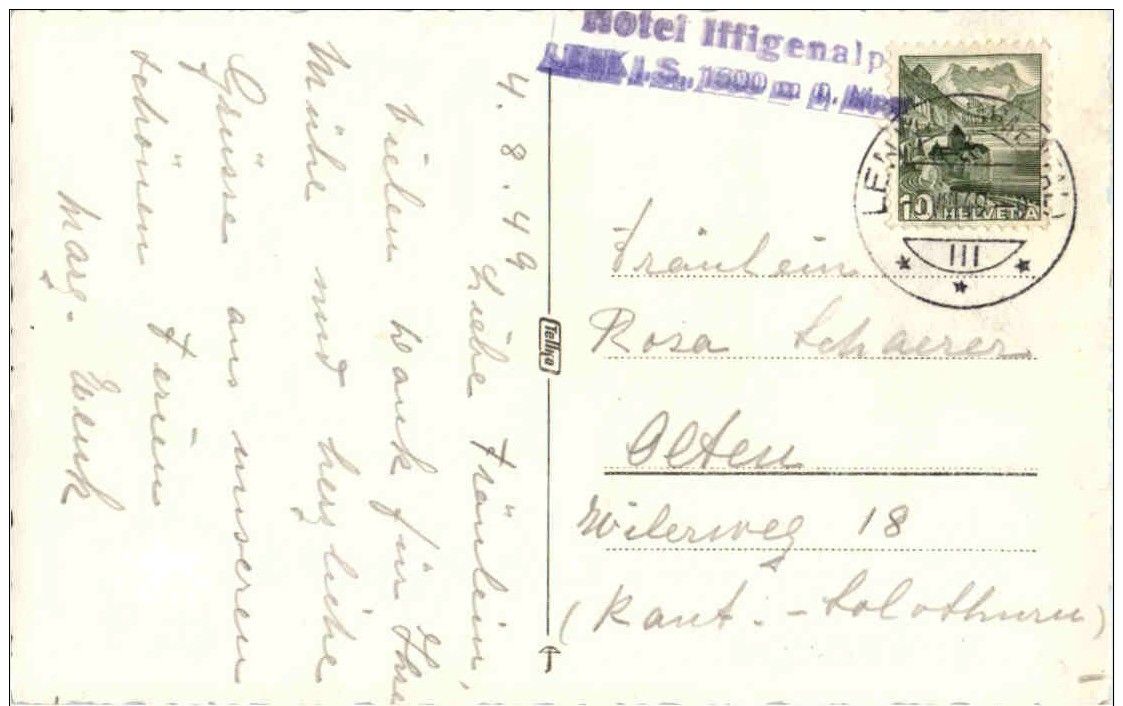 Hotel Iffigenalp
LENK i. S., 1600 m ü. Meer
LENK
III
10 HELVETIA
4. 8. 49
Liebe Fräulein,
Vielen Dank für Ihre
Mühe und herzliche
Grüsse aus unseren
schönen Ferien
Marg. Wenk
Tellko
Fräulein
Rosa Schaerer
Olten
Wilerweg 18
(Kant. - Solothurn)